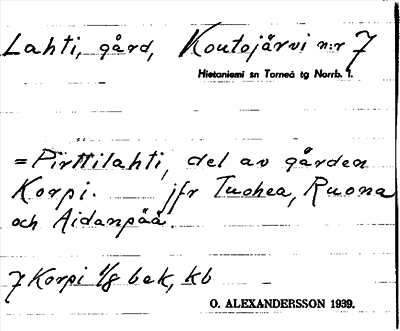 Lahti, gård, Koutojärvi n:r 7
Hietaniemi sn Torneå tg Norrb. l.
= Pirttilahti, del av gården
Korpi. jfr Tuohea, Ruona
och Aidanpää.
7 Korpi 1/8 bek, kb
O. ALEXANDERSSON 1939.